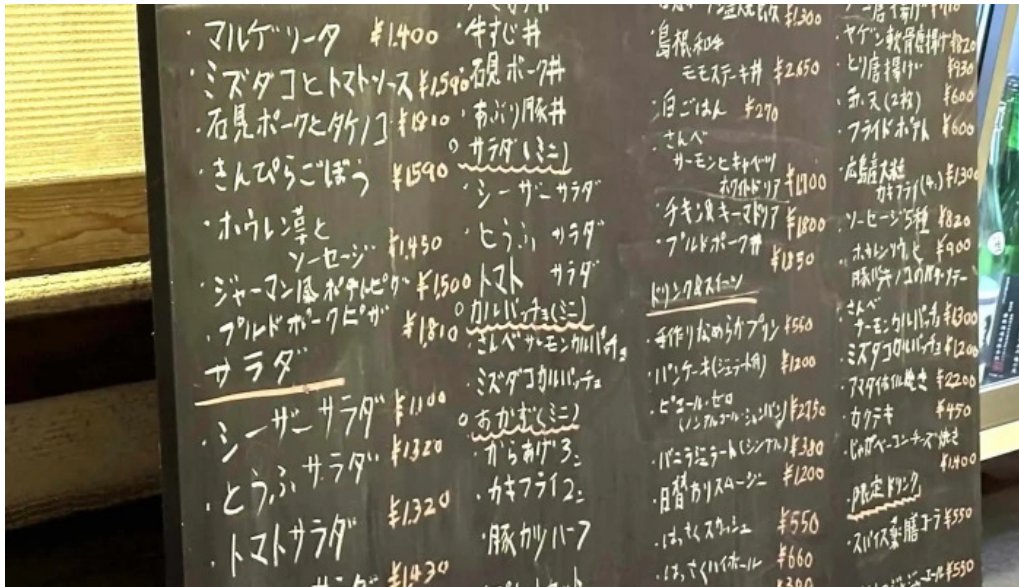 ・マルゲリータ ¥1,400
・ミズダコとトマトソース ¥1,590
・石見ポークとタケノコ ¥1,810
・きんぴらごぼう ¥1,590
・ホウレン草と
ソーセージ ¥1,430
・ジャーマン風ポテトピザ ¥1,500
・プルドポークピザ ¥1,810
サラダ
・シーザーサラダ ¥1,100
・とうふサラダ ¥1,320
・トマトサラダ ¥1,320
サラダ ¥1,430
・牛すじ丼
・石見ポーク丼
・あぶり豚丼
○サラダ(ミニ)
・シーザーサラダ
・とうふサラダ
・トマトサラダ
○カルパッチョ(ミニ)
・さんべサーモンカルパッチョ
・ミズダコカルパッチョ
○おかず(ミニ)
・からあげ3コ
・カキフライ2コ
・豚カツハーフ
¥1,300
・島根和牛
モモステーキ丼 ¥2,650
・白ごはん ¥270
・さんべ
サーモンとキャベツ
ホワイトドリア ¥1,700
・チキン&キーマドリア ¥1,800
・プルドポーク丼 ¥1,850
ドリンク&スイーツ
・手作りなめらかプリン ¥550
・パンケーキ(ジェラート付) ¥1200
・ピエール・ゼロ
(ノンアルコールシャンパン) ¥2750
・バニラジェラート(シングル) ¥380
・日替りスムージー ¥1,200
・はっさくスカッシュ ¥550
・はっさくハイボール ¥660
・ヤゲン軟骨唐揚げ ¥820
・とり唐揚げ ¥930
・赤天(2枚) ¥600
・フライドポテト ¥600
・広島産大粒
カキフライ(4コ) ¥1,300
・ソーセージ5種 ¥820
・ホウレンソウと ¥900
豚バラキノコのバターソテー
・さんべ
サーモンカルパッチョ ¥1,300
・ミズダコカルパッチョ ¥1,200
・アマダイホイル焼き ¥2200
・カクテキ ¥450
・じゃがベーコンチーズ焼き
¥1,400
限定ドリンク
・スパイス薬膳コーラ ¥550
¥550